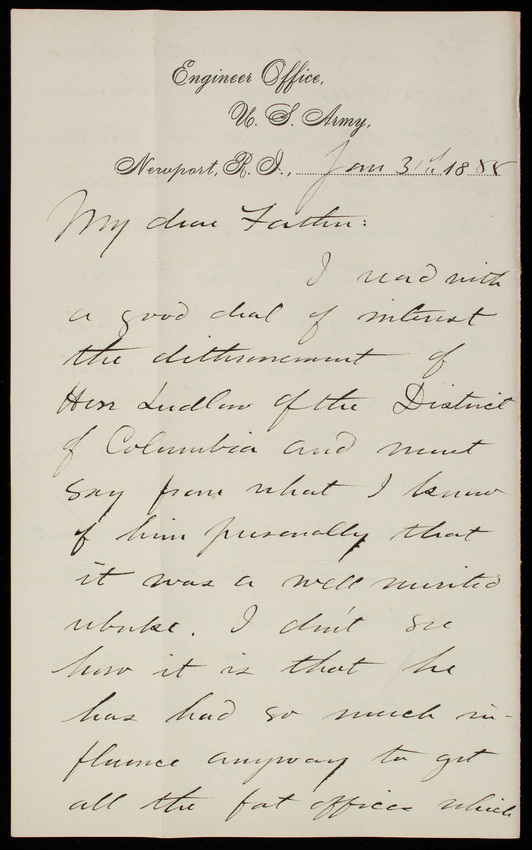 Engineer Office,
U. S. Army,
Newport, R. I., Jan 31st 1888
My dear Father:
I read with
a good deal of interest
the dethronement of
Ludlow of the District
of Columbia and must
say from what I know
of him personally that
it was a well merited
rebuke. I don't see
how it is that he
has had so much in-
fluence anyway to get
all the fat offices which